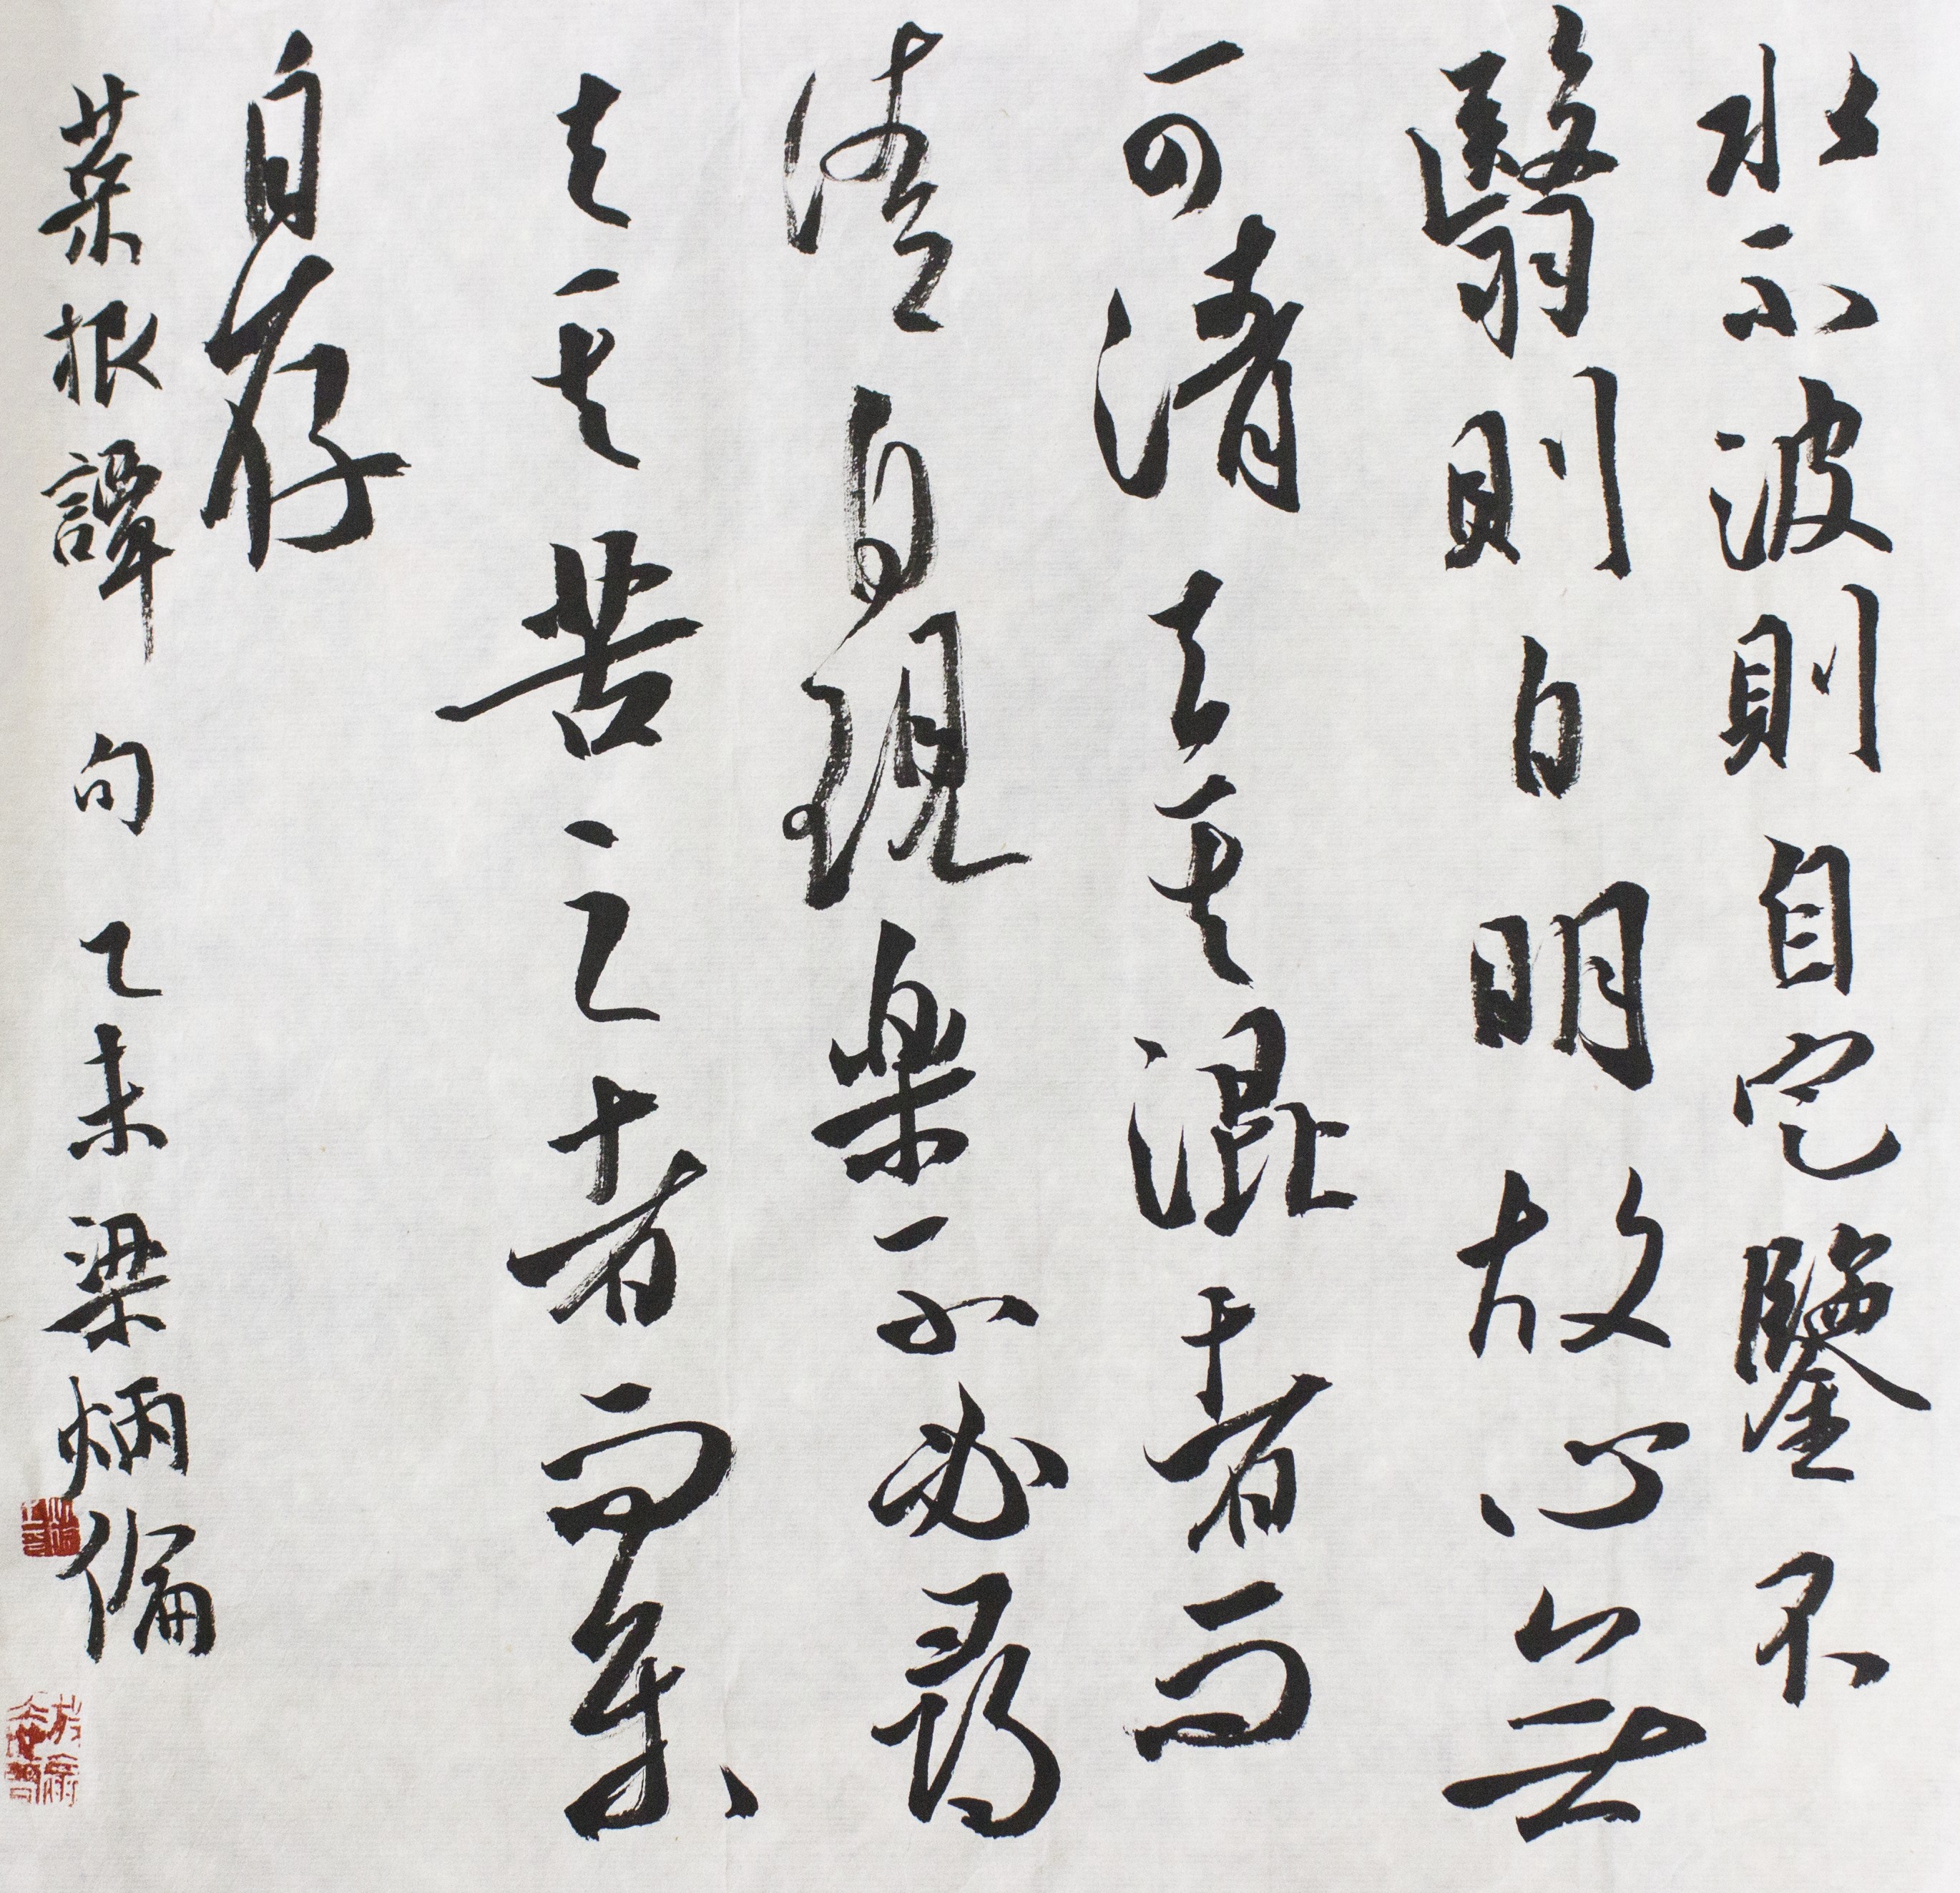 水不波則自定鑒不
翳則自明故心無
可清去其混者而
清自現樂不必尋
去其苦之者而樂
自存
菜根譚句乙未梁炳倫